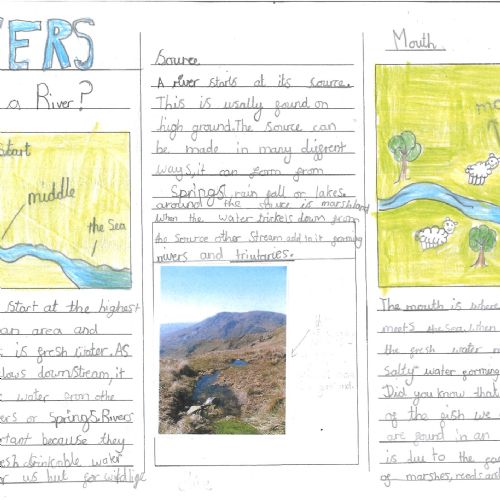 ERS
a River?
start
middle
the Sea
start at the highest
an area and
is fresh water. AS
lows downstream, it
water
ers or Springs. Rivers
rtant because they
esh drinkable water
or us but for wildlife
Source
A river starts at its source.
This is usally found on
high ground. The source can
be made in many different
ways, it can form from
springs, rain fall or lakes.
around the source is marshland
when the water trickels down from
the source other stream add in it forming
rivers and triutaries.
Mouth
mo
The mouth is where
meets the sea. when
the fresh water
salty water forming
Did you know that
of the fish we
are found in an
is due to the
of marshes, reeds